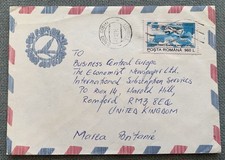 POSTA ROMÂNĂ
TO
Business Central Europe
The Economist Newspaper Ltd
International Subscription Services
PO Box 14, Harold Hill,
Romford RM3 8EQ
UNITED KINGDOM
Marea Britanie